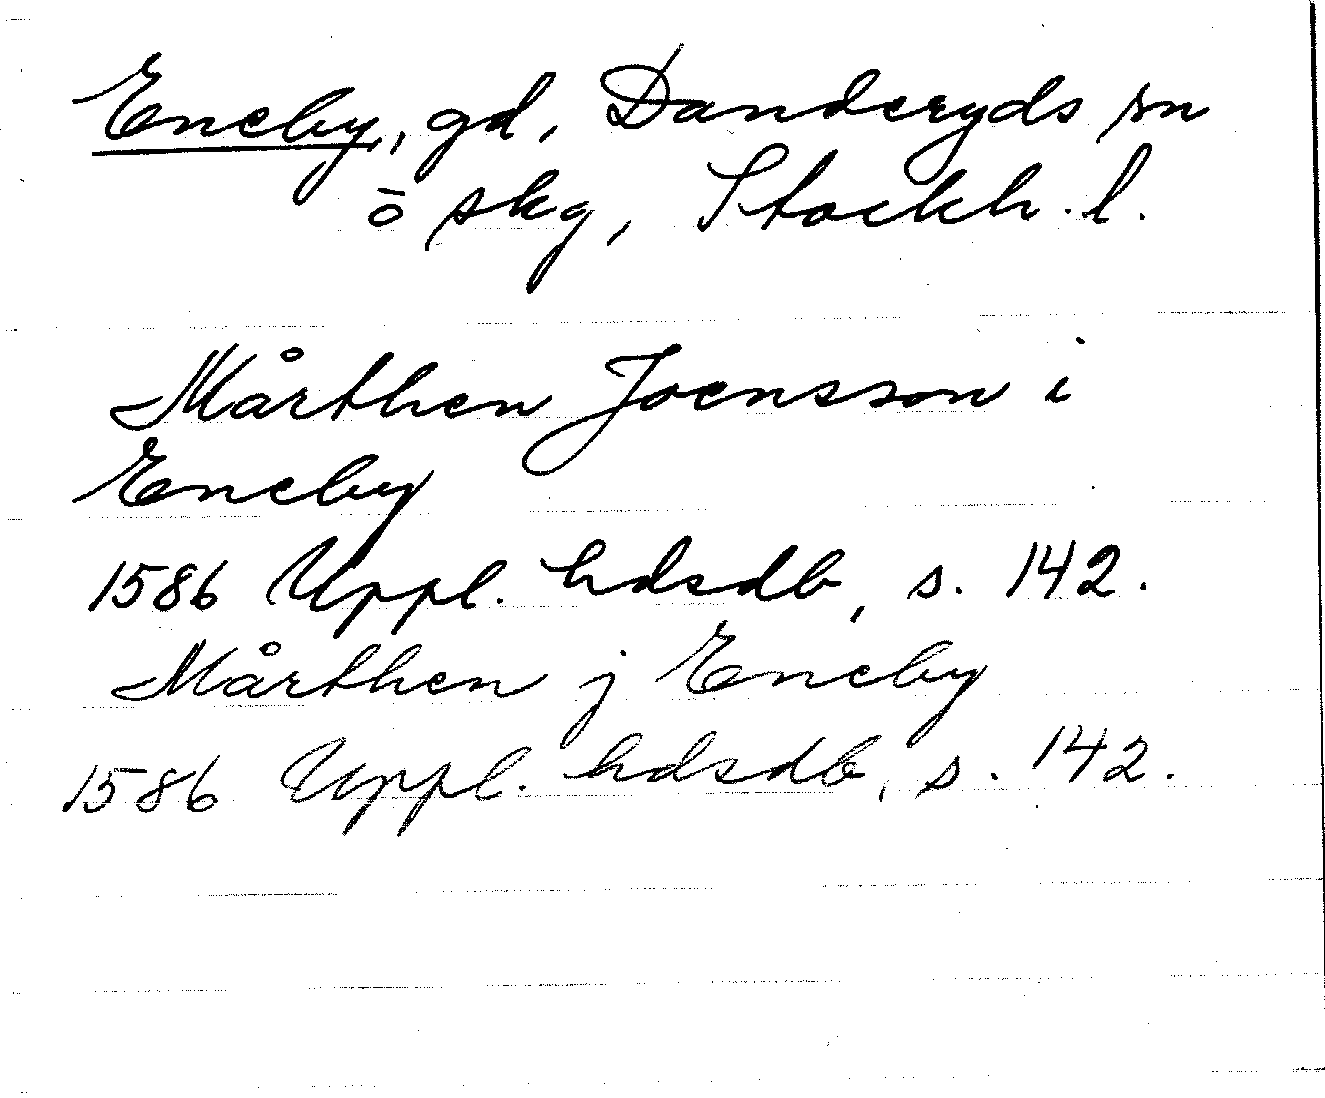 Eneby, gd, Danderyds sn
ö skg, Stockh. l.
Mårthen Joensson i
Eneby
1586 Uppl. hdsdb, s. 142.
Mårthen j Eneby
1586 Uppl. hdsdb, s. 142.